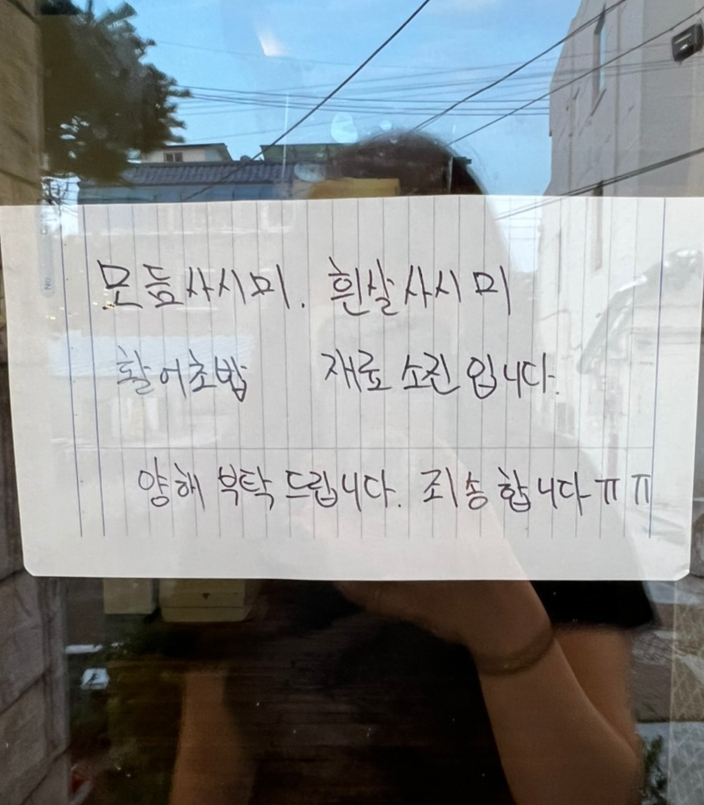 모듬사시미. 흰살사시미
활어초밥 재료소진입니다.
양해 부탁드립니다. 죄송합니다ㅠㅠ